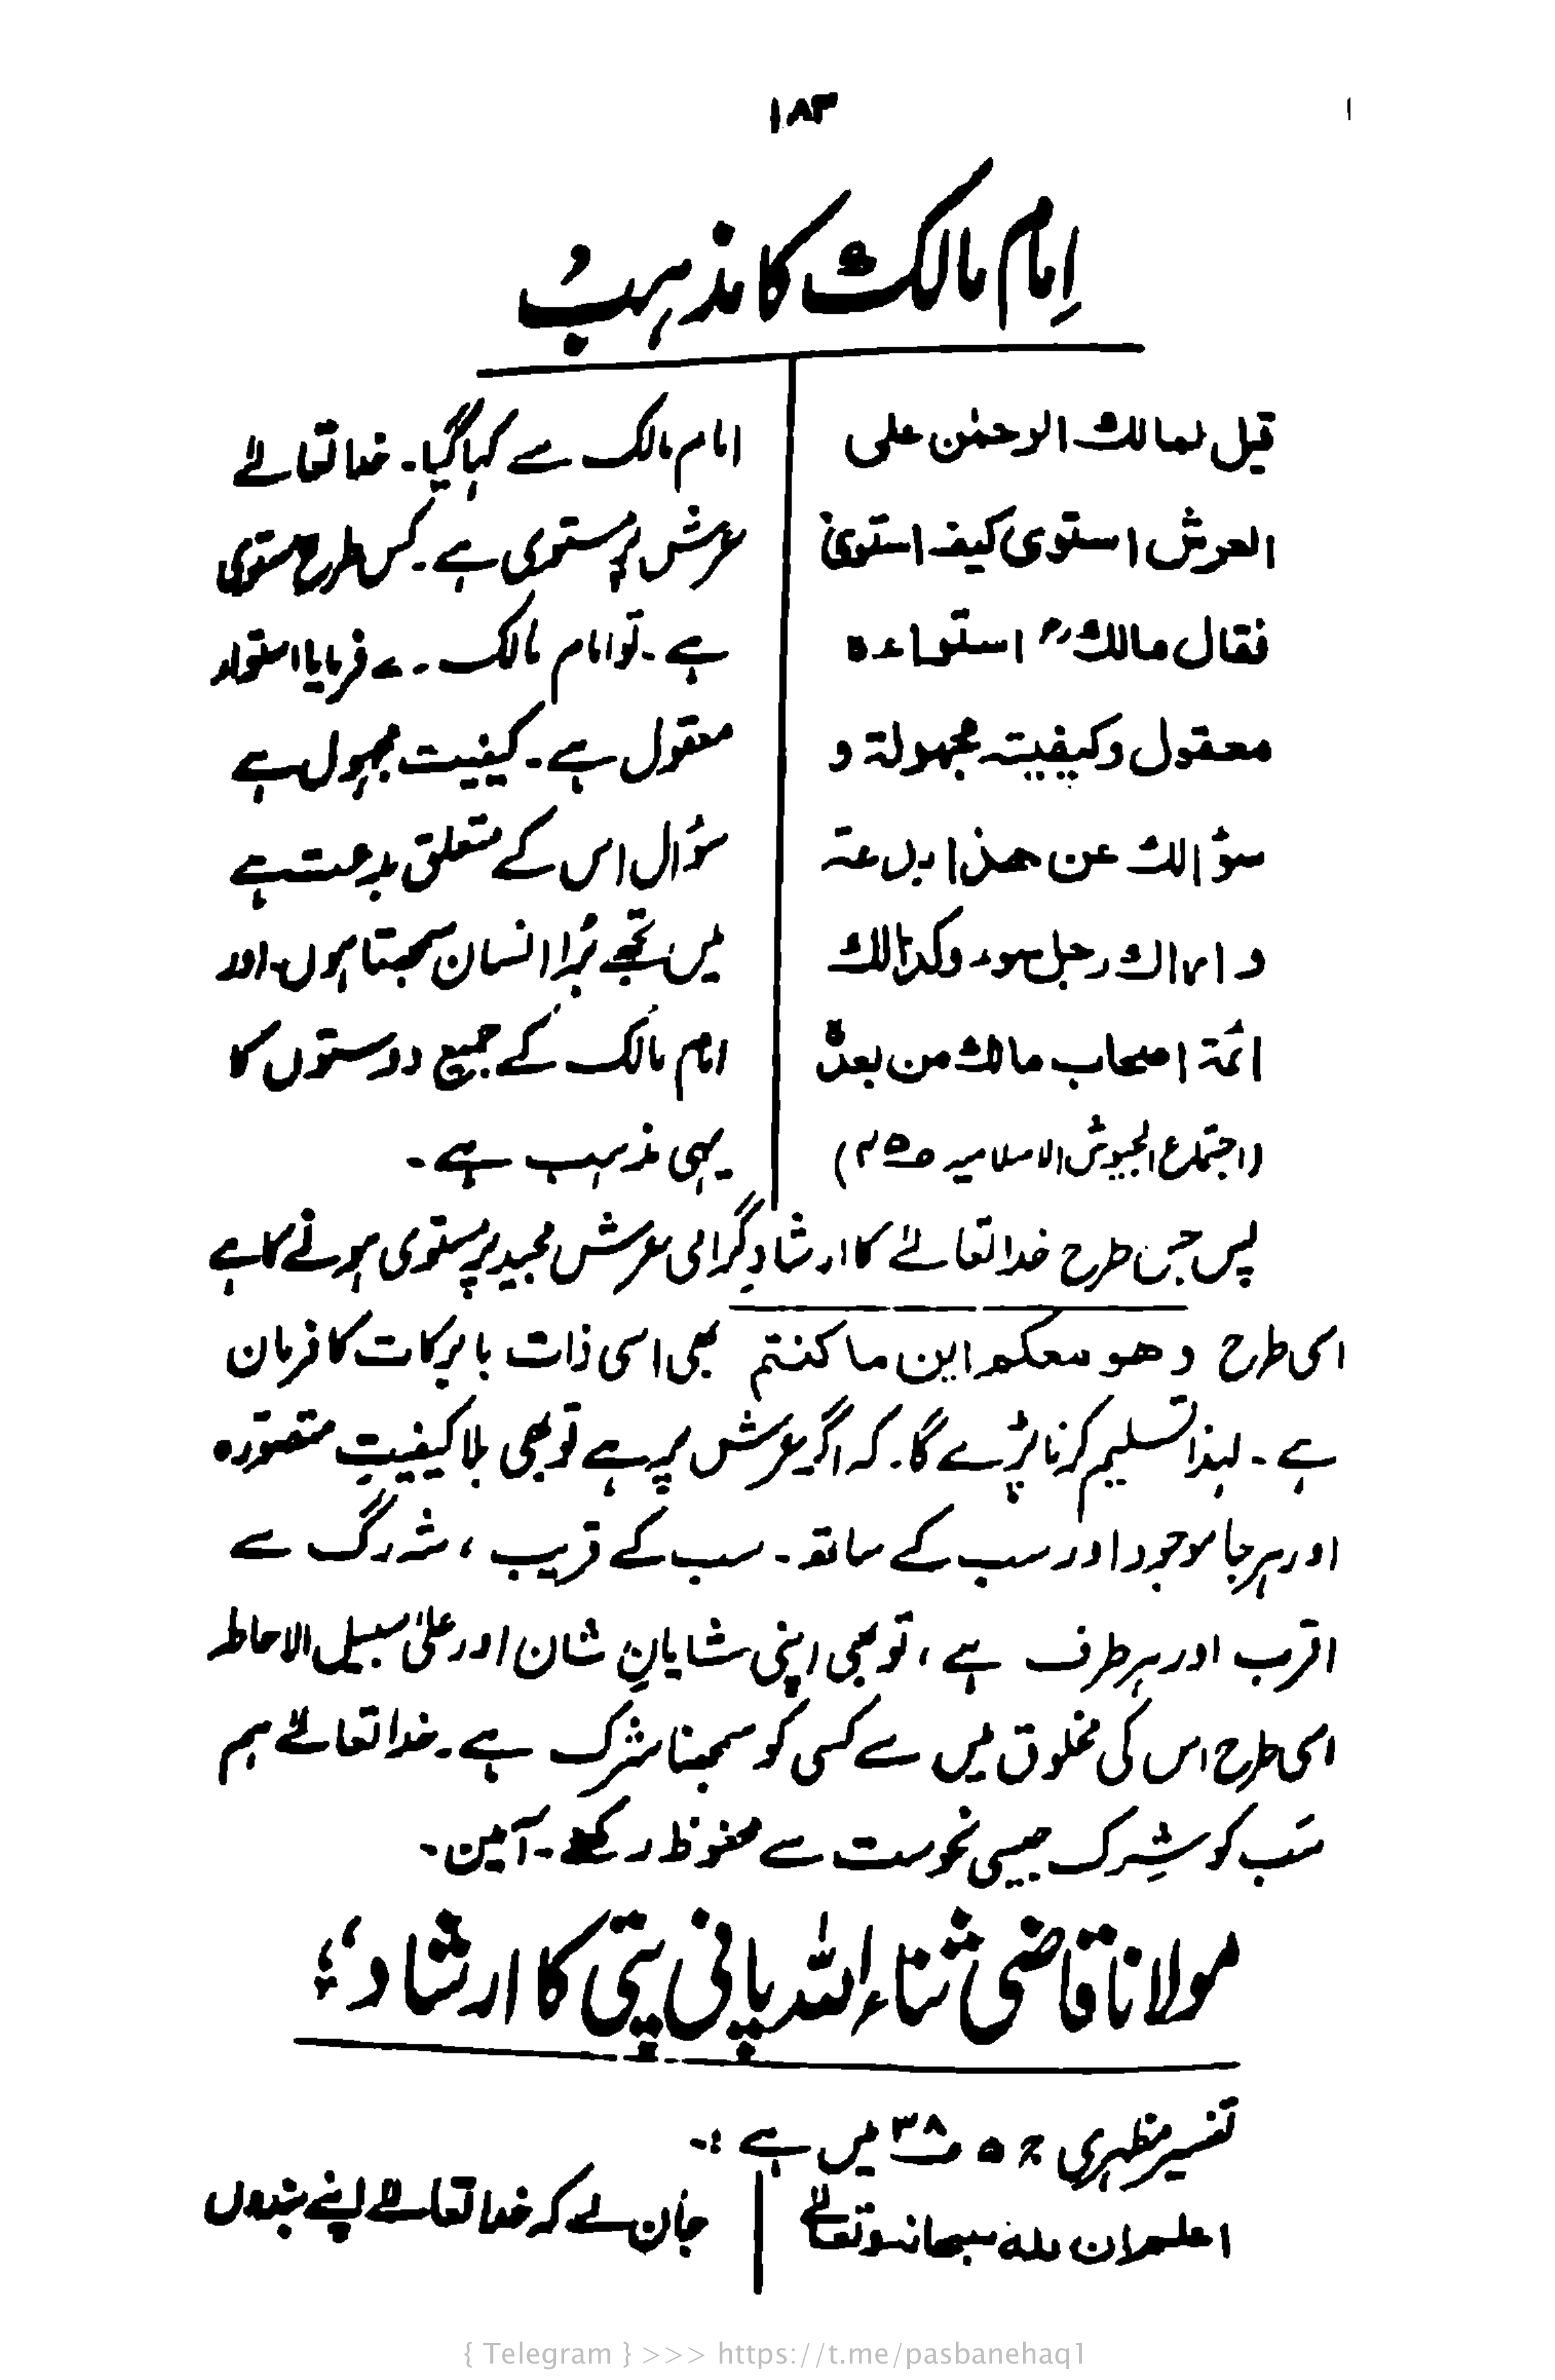 ۱۸۳
اِمام مالک کا مذہب
قیل لمالک الرحمٰن علی
العرش استوی کیف استویٰ
فقال مالکؒ استواءہ
معقول وکیفیتہ مجہولۃ و
سؤالک عن ھذا بدعۃ
و اراک رجل سوء وکذالک
ائمۃ اصحاب مالک من بعدہٗ
(اجتماع الجیوش الاسلامیہ
امام مالک سے کہا گیا۔ خدا تعالےٰ
عرش پر مستوی ہے۔ کس طرح مستوی
ہے۔ تو امام مالک نے فرمایا استواء
معقول ہے۔ کیفیت مجہول ہے
سوٴال اس کے متعلق بدعت ہے
میں تجھے بُرا انسان سمجھتا ہوں۔ اور
امام مالک کے جمیع دوستوں کا
یہی مذہب ہے۔
پس جس طرح خدا تعالےٰ کا ارشادِ گرامی عرش مجید پر مستوی ہونے کا ہے
اسی طرح وھو معکم این ما کنتم بھی اسی ذات بابرکات کا فرمان
ہے۔ لہذا تسلیم کرنا پڑے گا۔ کہ اگر عرش پر ہے تو بھی بلا کیفیتِ متصورہ
اور ہر جا موجود اور سب کے ساتھ۔ سب کے قریب، شہ رگ سے
اقرب اور ہر طرف ہے، تو بھی اپنی شایانِ شان اور علیٰ سبیل الاحاطہ
اسی طرح اس کی مخلوق میں سے کسی کو سمجھنا شرک ہے۔ خدا تعالےٰ ہم
سَب کو شِرک جیسی نحوست سے محفوظ رکھے۔ آمین۔
مولانا قاضی ثناء اللہ پانی پتی کا ارشاد؛
تفسیر مظہری ج ۵ ص۳۸ میں ہے :-
اعلم ان للہ سبحانہ وتعالےٰ
جان لے کہ خدا تعالےٰ اپنے بندوں
{ Telegram } >>> https://t.me/pasbanehaq1